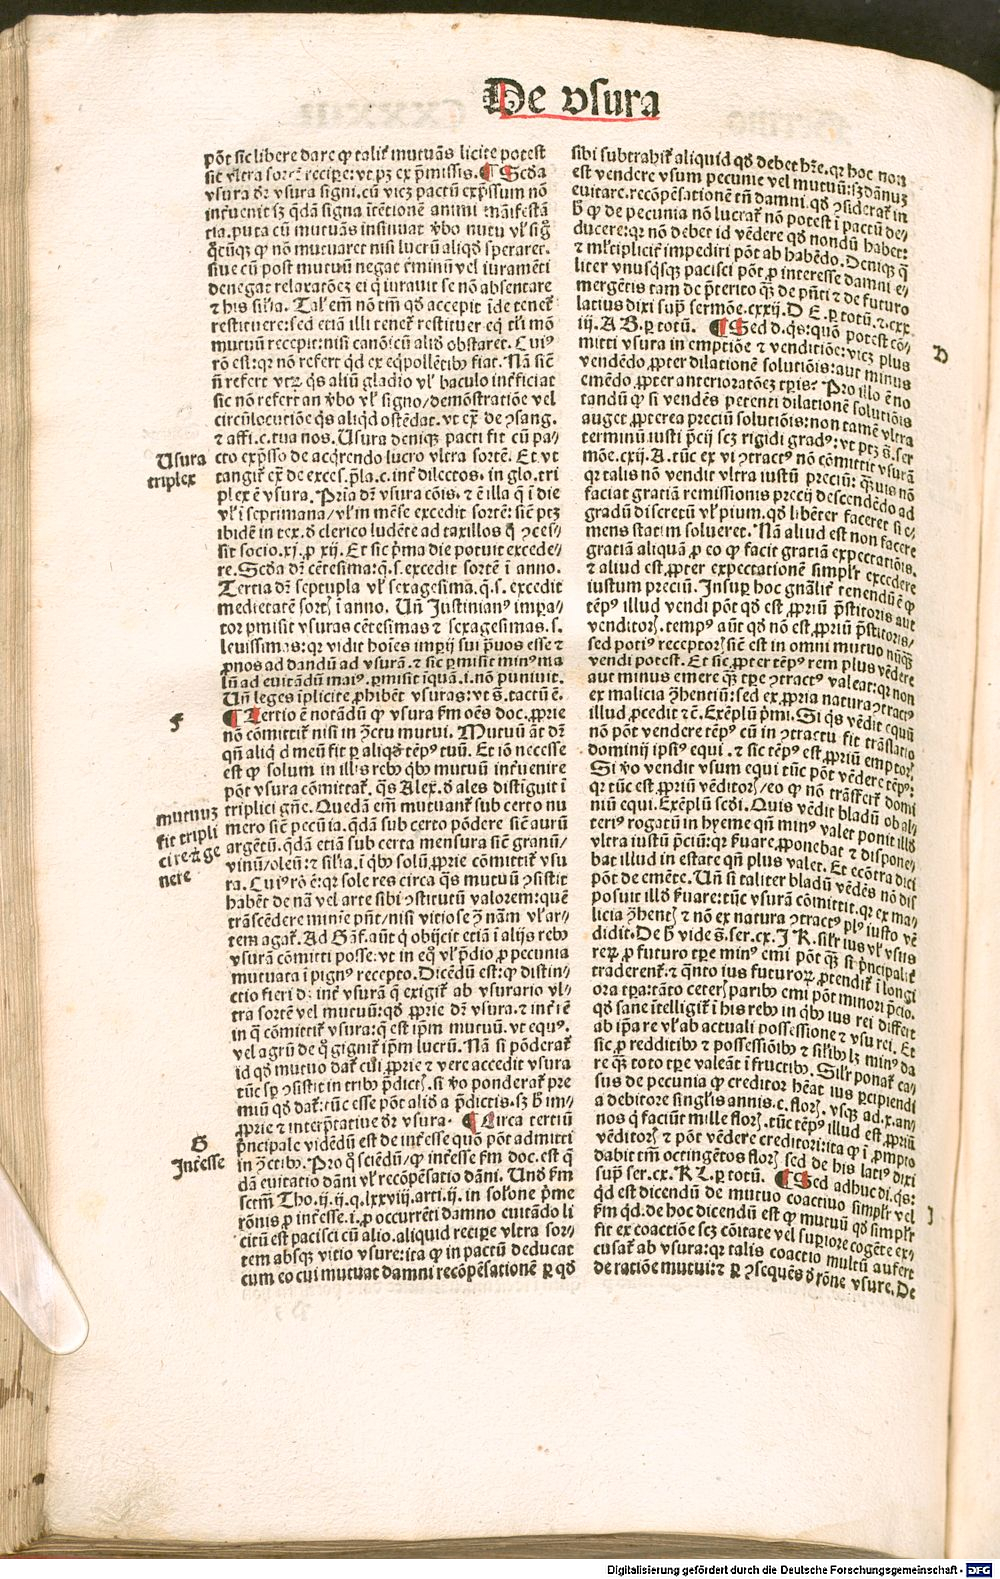 De vsura
põt sic libere dare ꝙ talit̃ mutuãs licite potest
sit vltra sortẽ recipe: vt pꝫ ex p̃missis. ¶ Scđa
vsura dr̃ vsura signi. cũ vicꝫ pactũ exp̃ssum nõ
int̃uenit sꝫ q̃dã signa ĩtẽtionẽ animi mãifestã
tia. puta cũ mutuãs insinuat v̾bo nutu vl̃ sig°
q̃cũqꝫ ꝙ nõ mutuaret nisi lucrũ aliqđ speraret.
siue cũ post mutuũ negat t̃minũ vel iuramẽti
denegat relaxatõeꝫ ei q̃ iurauit se nõ absentare
⁊ his sil̃ia. Tal̃ em̃ nõ tm̃ qđ accepit ĩde tenet̃
restituere: sed etiã illi tenet̃ restituer eq̃ tũ mõ
mutuũ recepit: nisi canõicũ aliđ obstaret. Cuiꝰ
rõ est: qr nõ refert qđ ex eq̃pollẽtibꝰ fiat. Nã sic̃
ñ refert vtꝝ q̃s aliũ gladio vl̃ baculo int̃ficiat
sic nõ refert an v̾bo vl̃ signo/ demõstratiõe vel
circũlocutiõe q̃s aliqđ ostẽdat. vt ex̃ de ꝯsang.
⁊ affi. c. tua nos. Usura deniqꝫ pacti fit cũ pa⸗
cto exp̃sso de acq̃rendo lucro vltra sortẽ. Et vt
Usura
triplex
tangit̃ ex̃ de exces. p̃la. c. int̃ dilectos. in glo. tri
plex ẽ vsura. Pria dr̃ vsura cõis. ⁊ ẽ illa q̃ ĩ die
vl̃ ĩ septimana/ vl̃ in mẽse excedit sortẽ: sic̃ ptꝫ
ibidẽ in tex. đ clerico ludẽte ad taxillos q̃ ꝯces⸗
sit socio. xj. ꝓ xij. Et sic p̃ma die potuit excede⸗
re. Scđa dr̃ cẽtesima: q. s. excedit sortẽ ĩ anno.
Tertia dr̃ septupla vl̃ sexagesima. q. s. excedit
medietatẽ sortꝭ ĩ anno. Uñ Justinianꝰ impa⸗
tor pmisit vsuras cẽtesimas ⁊ sexagesimas. s.
leuissimas: qr vidit hoĩes impij sui p̃uos esse ⁊
ꝓnos ad dandũ ad vsurã. ⁊ sic ꝑmisit minꝰ ma
lũ ad euitãdũ maiꝰ. ꝑmisit ĩquã. i. nõ puniuit.
Uñ leges ĩplicite ꝓhibẽt vsuras: vt s̃. tactũ ẽ.
f
¶ Tertio ẽ notãdũ ꝙ vsura fm̃ oẽs doc. ꝓprie
nõ cõmittit̃ nisi in ꝯctu mutui. Mutuũ aũt dr̃
qñ aliqđ meũ fit ꝑ aliqđ tẽpꝰ tuũ. Et iõ necesse
est ꝙ solum in illis rebꝰ q̃bꝰ mutuũ int̃uenire
põt vsura cõmittat̃. q̃s Alex. đ ales distiguit ĩ
mutuuꝫ
fit tripli
ci reꝝ ge
nere
triplici gñe. Quedã em̃ mutuant̃ sub certo nu
mero sic̃ pecũia. q̃dã sub certo põdere sic̃ aurũ
argẽtũ. q̃dã etiã sub certa mensura sic̃ granũ/
vinũ/ oleũ: ⁊ sil̃ia. ĩ q̃bꝰ solũ ꝓprie cõmittit̃ vsu
ra. Cuiꝰ rõ ẽ: qr sole res circa q̃s mutuũ ꝯsistit
habẽt de nã vel arte sibi ꝯstitutũ valorem: quẽ
trãscẽdere minĩe pñt/ nisi vitiose ꝯ̃ nãm vl̃ ar⸗
tem agat̃. Ad ꝯ̃. aut q̃ obijcit etiã ĩ alijs rebꝰ
vsurã cõmitti posse: vt in eq° vl̃ p̃dio ꝓ pecunia
mutuata ĩ pignꝰ recepto. Dicẽdũ est: ꝙ distin⸗
ctio fieri dꝫ int̃ vsurã q̃ exigit̃ ab vsurario vl⸗
tra sortẽ vel mutuũ: qđ ꝓprie dr̃ vsura. ⁊ int̃ iẽ
in q̃ cõmittit̃ vsura: q̃ est ip̃m mutuũ. vt equꝰ.
vel agrũ de q° gignit̃ ip̃m lucrũ. Nã si põderat̃
id qđ mutuo dat̃ cui ꝓprie ⁊ vere accedit vsura
tũc sꝑ ꝯsistit in tribꝰ p̃dictꝭ. si v̾o ponderat̃ pre
miũ qđ dat̃: tũc esse põt aliđ a p̃dictis. sꝫ h̃ im⸗
ꝓprie ⁊ interp̃tatiue dr̃ vsura. ¶ Circa tertiũ
G
Int̃esse
p̃ncipale vidẽdũ est de int̃esse quõ põt admitti
in ꝯctibꝰ. Pro q° sciẽdũ/ ꝙ int̃esse fm̃ doc. est q̃
dã euitatio dãni vl̃ recõpẽsatio dãni. Unđ fm̃
sctm̃ Tho. ij. ij. q. lxxviij. arti. ij. in sol̃one p̃me
rõnis ꝓ int̃esse. i. ꝓ occurrẽti damno cuitãdo li
citũ est pacisci cũ alio. aliquid recipe vltra sor⸗
tem absqꝫ vitio vsure: ita ꝙ in pactũ deducat
cum eo cui mutuat damni recõpẽsationẽ ꝑ qđ
sibi subtrahit̃ aliquid qđ debet hr̃e. qr hoc non
est vendere vsum pecunie vel mutuũ: sꝫ dãnuꝫ
euitare. recõpẽsationẽ tñ damni. qđ ꝯsiderat̃ in
h̃ ꝙ de pecunia nõ lucrat̃ nõ potest ĩ pactũ de⸗
ducere: qr nõ debet id vẽdere qđ nondũ habet:
⁊ ml̃tiplicit̃ impediri põt ab habẽdo. Deniqꝫ q̃
liter vnusq̃sqꝫ pacisci põt ꝓ interesse damni e⸗
mergẽtis tam de p̃terito q̃ꝫ de p̃nti ⁊ de futuro
latius dixi sup̃ sermõe. cxxij. D E. ꝑ totũ. ⁊. cxx
iij. A B. ꝑ totũ. ¶ Sed d. q̃s: quõ potest cõ⸗
D
mitti vsura in emptiõe ⁊ venditiõe: vicꝫ plus
vendẽdo ꝓpter dilationẽ solutiõis: aut minus
emẽdo ꝓpter anterioratõeꝫ tꝑis? Pro illo ẽ no
tandũ ꝙ si vendẽs petenti dilationẽ solutiõis
auget ꝓpterea preciũ solutiõis: non tamẽ vltra
terminũ iusti p̃cij scꝫ rigidi gradꝰ: vt ptꝫ s̃. ser
mõe. cxij. A. tũc ex vi ꝯtractꝰ nõ cõmittit vsurã
qr talis nõ vendit vltra iustũ preciũ: q̃uis nõ
faciat gratiã remissionis precij descendẽdo ad
gradũ discretũ vl̃ pium. qđ libẽter faceret si e⸗
mens statim solueret. Nã aliud est non facere
gratiã aliquã ꝓ eo ꝙ facit gratiã expectatiõis.
⁊ aliud est ꝓpter expectationẽ simpl̃r excedere
iustum preciũ. Insuꝑ hoc gñalit̃ tenendũ ẽ ꝙ
tẽpꝰ illud vendi põt qđ est ꝓpriũ p̃stitoris aut
venditorꝭ. tempꝰ aũt qđ nõ est ꝓpriũ p̃stitoris/
sed potiꝰ receptorꝭ sic̃ est in omni mutuo nũqꝫ
vendi potest. Et sic ꝓpter tẽpꝰ rem plus vẽdere
aut minus emere q̃ꝫ tꝑe ꝯtractꝰ valeat: qr non
ex malicia ꝯhentiũ: sed ex ꝓpria natura ꝯtractꝰ
illud ꝓcedit ⁊c̃. Exẽplũ p̃mi. Si q̃s vẽdit equũ
nõ põt vendere tẽpꝰ cũ in ꝯtractu fit trãslatio
dominij ipsiꝰ equi. ⁊ sic tẽpꝰ est ꝓpriũ emptorꝭ
Si v̾o vendit vsum equi tũc põt vẽdere tẽpꝰ:
qr tũc est ꝓpriũ vẽditorꝭ/ eo ꝙ nõ trãsfert̃ domi
niũ equi. Exẽplũ scđi. Quis vẽdit bladũ ob al⸗
teriꝰ rogatũ in hyeme qñ minꝰ valet ponit illđ
vltra iustũ p̃ciũ: qr f̃uare. ꝓponebat ⁊ dispone⸗
bat illud in estate qñ plus valet. Et ecõtra dici
põt de emẽte. Uñ si taliter bladũ vẽdẽs nõ dis
posuit illđ f̃uare: tũc vsurã cõmittit. qr ex ma⸗
licia ꝯhentꝭ ⁊ nõ ex natura ꝯtractꝰ plꝰ iusto vẽ
didit. De h̃ vide s̃. ser. cx. J K. sil̃r ius vl̃ vsus
reꝝ ꝓ futuro tꝑe minꝰ emi põt q̃ꝫ si p̃ncipalit̃
traderent̃. ⁊ q̃nto ius futuroꝝ ꝓtendit̃ ĩ longi
ora tꝑa: tãto ceterꝭ paribꝰ emi põt minori p̃cio.
qđ sane ĩtelligit̃ ĩ his rebꝰ in q̃bꝰ ius rei differt
ab ip̃a re vl̃ ab actuali possessione ⁊ vsu rei. Et
sic ꝓ redditibꝰ ⁊ possessiõibꝰ ⁊ sil̃ibꝰ lꝫ minꝰ da
re q̃ꝫ toto tꝑe valeãt ĩ fructibꝰ. Sil̃r ponat̃ ca⸗
sus de pecunia ꝙ creditor hẽat ius ꝑcipiendi
a debitore singl̃is annis. c. florꝭ. vsqꝫ ad. x. an⸗
nos q̃ faciũt mille florꝭ. tũc tẽpꝰ illud est ꝓpriũ
vẽditorꝭ ⁊ põt vẽdere creditori: ita ꝙ ĩ ꝓmpto
dabit tm̃ octingẽtos florꝭ sed de his latiꝰ dixi
sup̃ ser. cx. K L. ꝑ totũ. ¶ Sed adhuc di. q̃s:
J
qđ est dicendũ de mutuo coactiuo simpl̃r vel
fm̃ qđ. de hoc dicendũ est ꝙ mutuũ qđ simpl̃r
fit ex coactiõe scꝫ cõitate vel supiore cogẽte ex⸗
cusat̃ ab vsura: qr talis coactio multũ aufert
de ratiõe mutui: ⁊ ꝑ ꝯsequẽs đ rõne vsure. De
Digitalisierung gefördert durch die Deutsche Forschungsgemeinschaft - DFG